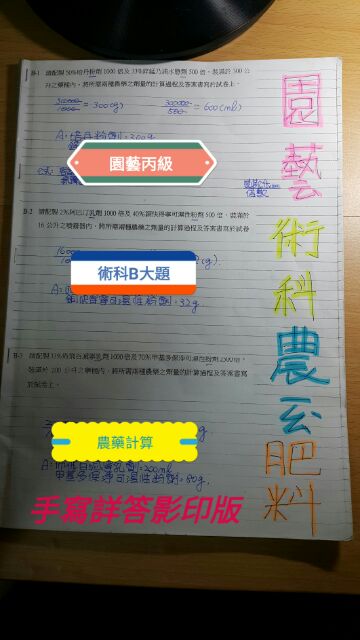 B-1 請配製 50%培丹粉劑 1000 倍及 33%鋅錳乃浦水懸劑 500 倍，裝滿於 300 公
升之藥桶內，將所需兩種農藥之劑量的計算過程及答案書寫於試卷上。
300000/1000 = 300(g) 300000/500 = 600(ml)
A:培丹粉劑:300g
園藝丙級
倍數
B-2 請配製 2%阿巴汀乳劑 1000 倍及 40%
可濕性粉劑 500 倍，裝滿於
16 公升之噴霧器內，將所需兩種農藥之劑量的計算過程及答案書寫於試卷
(g).
術科B大題
可溼性粉劑:32g
B-3 請配製
乳劑 1000 倍及 70%甲基多保淨可濕性粉劑 2500 倍，
裝滿於 200 公升之藥桶內，將所需兩種農藥之劑量的計算過程及答案書寫
於試卷上。
農藥計算
乳劑:200ml
甲基多保淨可溼性粉劑:80g.
手寫詳答影印版
園藝術科農系肥料